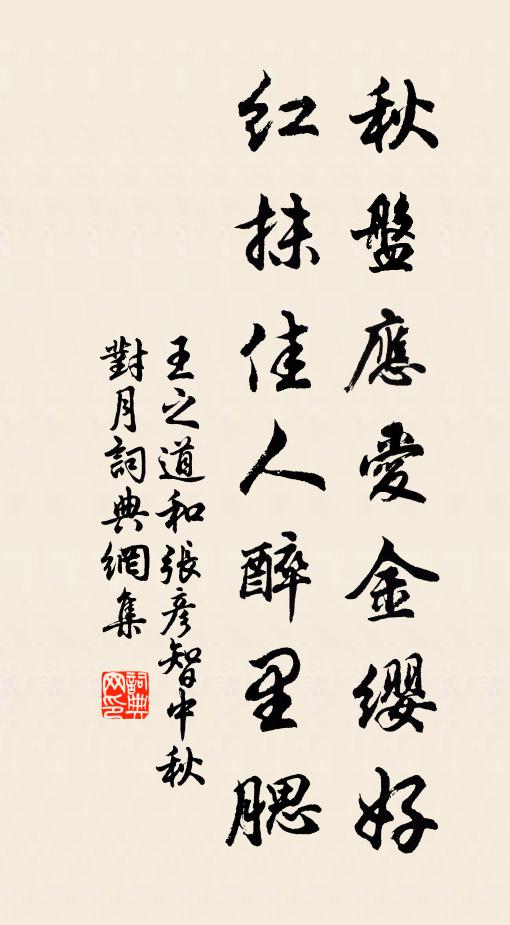 秋盤應愛金纓好
紅抹佳人醉里腮
王之道和張彥智中秋
對月詞典網集
詞典网印